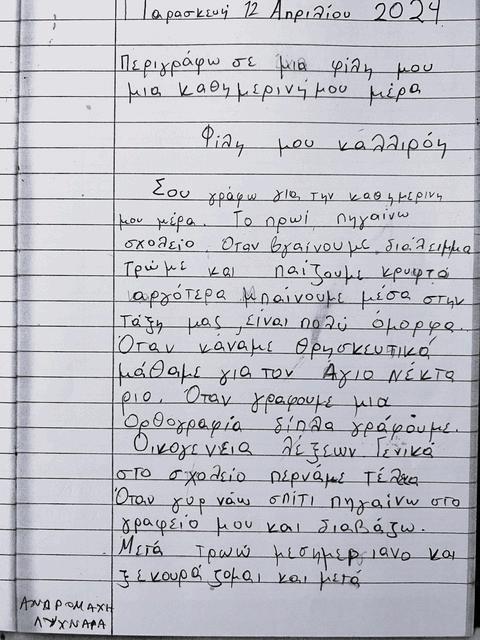 Παρασκευή 12 Απριλίου 2024
Περιγράφω σε μια φίλη μου
μια καθημερινή μου μέρα
Φίλη μου Καλλιρόη
Σου γράφω για την καθημερινη
μου μέρα. Το πρωί πηγαίνω
σχολείο. Όταν βγαίνουμε διάλειμμα
τρώμε και παίζουμε κρυφτό
αργότερα μπαίνουμε μέσα στην
τάξη μας, είναι πολύ όμορφα.
Όταν κάναμε θρησκευτικά
μάθαμε για τον Άγιο Νέκτα
ριο. Όταν γραφουμε μια
Ορθογραφία δίπλα γράφουμε.
Οικογενεια λέξεων Γενικά
στο σχολείο περνάμε τέλεια
Όταν γυρνάω σπίτι πηγαίνω στο
γραφείο μου και διαβάζω.
Μετά τρωώ μεσημεριανο και
ξεκουράζομαι και μετά
ΑΝΔΡΟΜΑΧΗ
ΛΥΧΝΑΡΑ